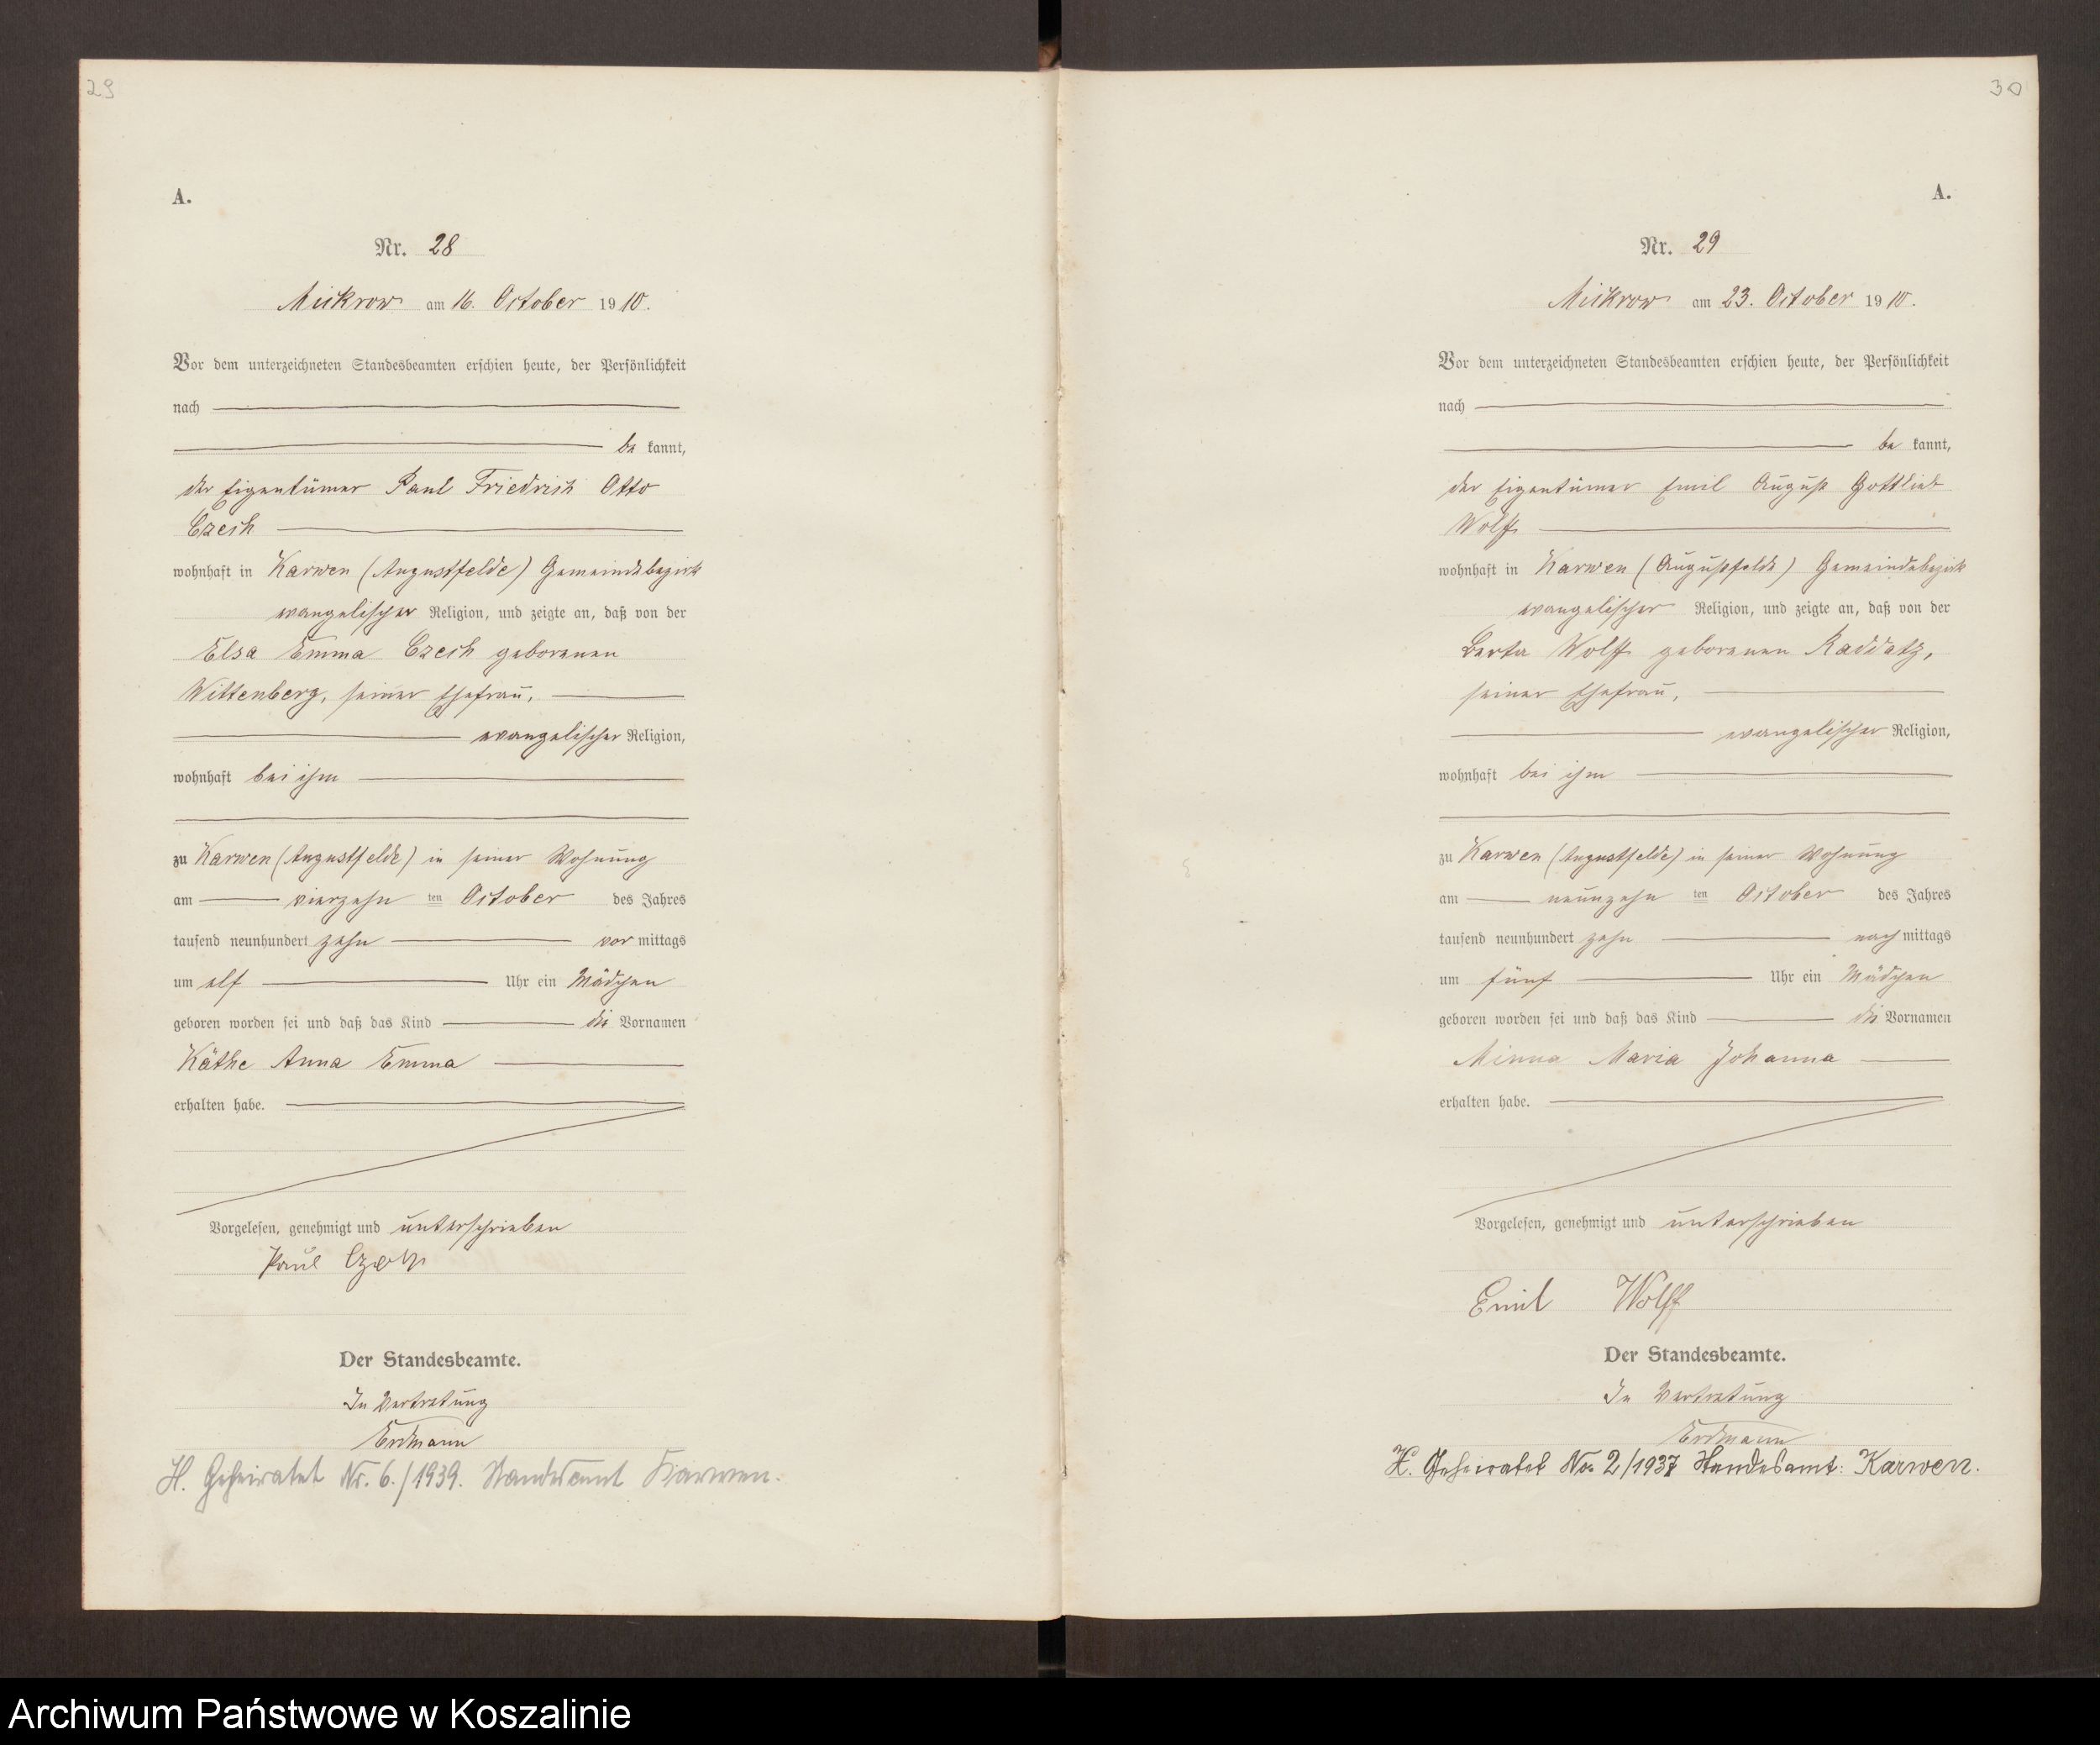 29
A.
Nr. 28
Mickrow am 16. October 1910.
Vor dem unterzeichneten Standesbeamten erschien heute, der Persönlichkeit
nach
be kannt,
der Eigentümer Paul Friedrich Otto
Czech
wohnhaft in Karwen (Augustfelde) Gemeindebezirk
evangelischer Religion, und zeigte an, daß von der
Elsa Emma Czech geborenen
Wittenberg, seiner Ehefrau,
evangelischer Religion,
wohnhaft bei ihm
zu Karwen (Augustfelde) in seiner Wohnung
am vierzehn ten October des Jahres
tausend neunhundert zehn vor mittags
um elf Uhr ein Mädchen
geboren worden sei und daß das Kind die Vornamen
Käthe Anna Emma
erhalten habe.
Vorgelesen, genehmigt und unterschrieben
Paul Czech
Der Standesbeamte.
In Vertretung
Erdmann
H. Geheiratet Nr. 6./1939. Standesamt Karwen.
30
A.
Nr. 29
Mickrow am 23. October 1910.
Vor dem unterzeichneten Standesbeamten erschien heute, der Persönlichkeit
nach
be kannt,
der Eigentümer Emil August Gottlieb
Wolff
wohnhaft in Karwen (Augustfelde) Gemeindebezirk
evangelischer Religion, und zeigte an, daß von der
Berta Wolff geborenen Raddatz,
seiner Ehefrau,
evangelischer Religion,
wohnhaft bei ihm
zu Karwen (Augustfelde) in seiner Wohnung
am neunzehn ten October des Jahres
tausend neunhundert zehn nach mittags
um fünf Uhr ein Mädchen
geboren worden sei und daß das Kind die Vornamen
Minna Maria Johanna
erhalten habe.
Vorgelesen, genehmigt und unterschrieben
Emil Wolff
Der Standesbeamte.
In Vertretung
Erdmann
H. Geheiratet No. 2/1937 Standesamt: Karwen.
Archiwum Państwowe w Koszalinie